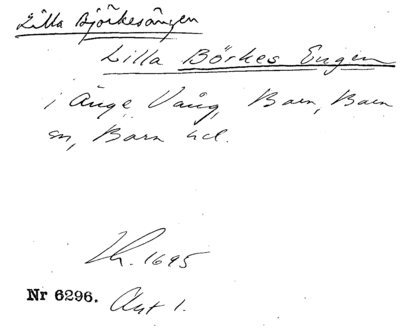 Lilla Björkesängen
Lilla Börkes Engen
i Änge Vång, Barn, Barn
en, Barn
1695
Nr 6296. Akt 1.